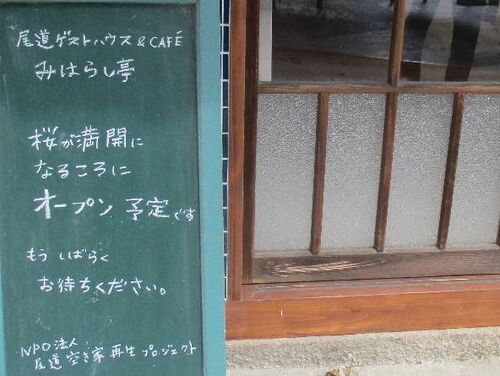 尾道ゲストハウス & CAFÉ
みはらし亭
桜が満開に
なるころに
オープン 予定です
もう しばらく
お待ちください。
NPO法人
尾道 空き家 再生 プロジェクト